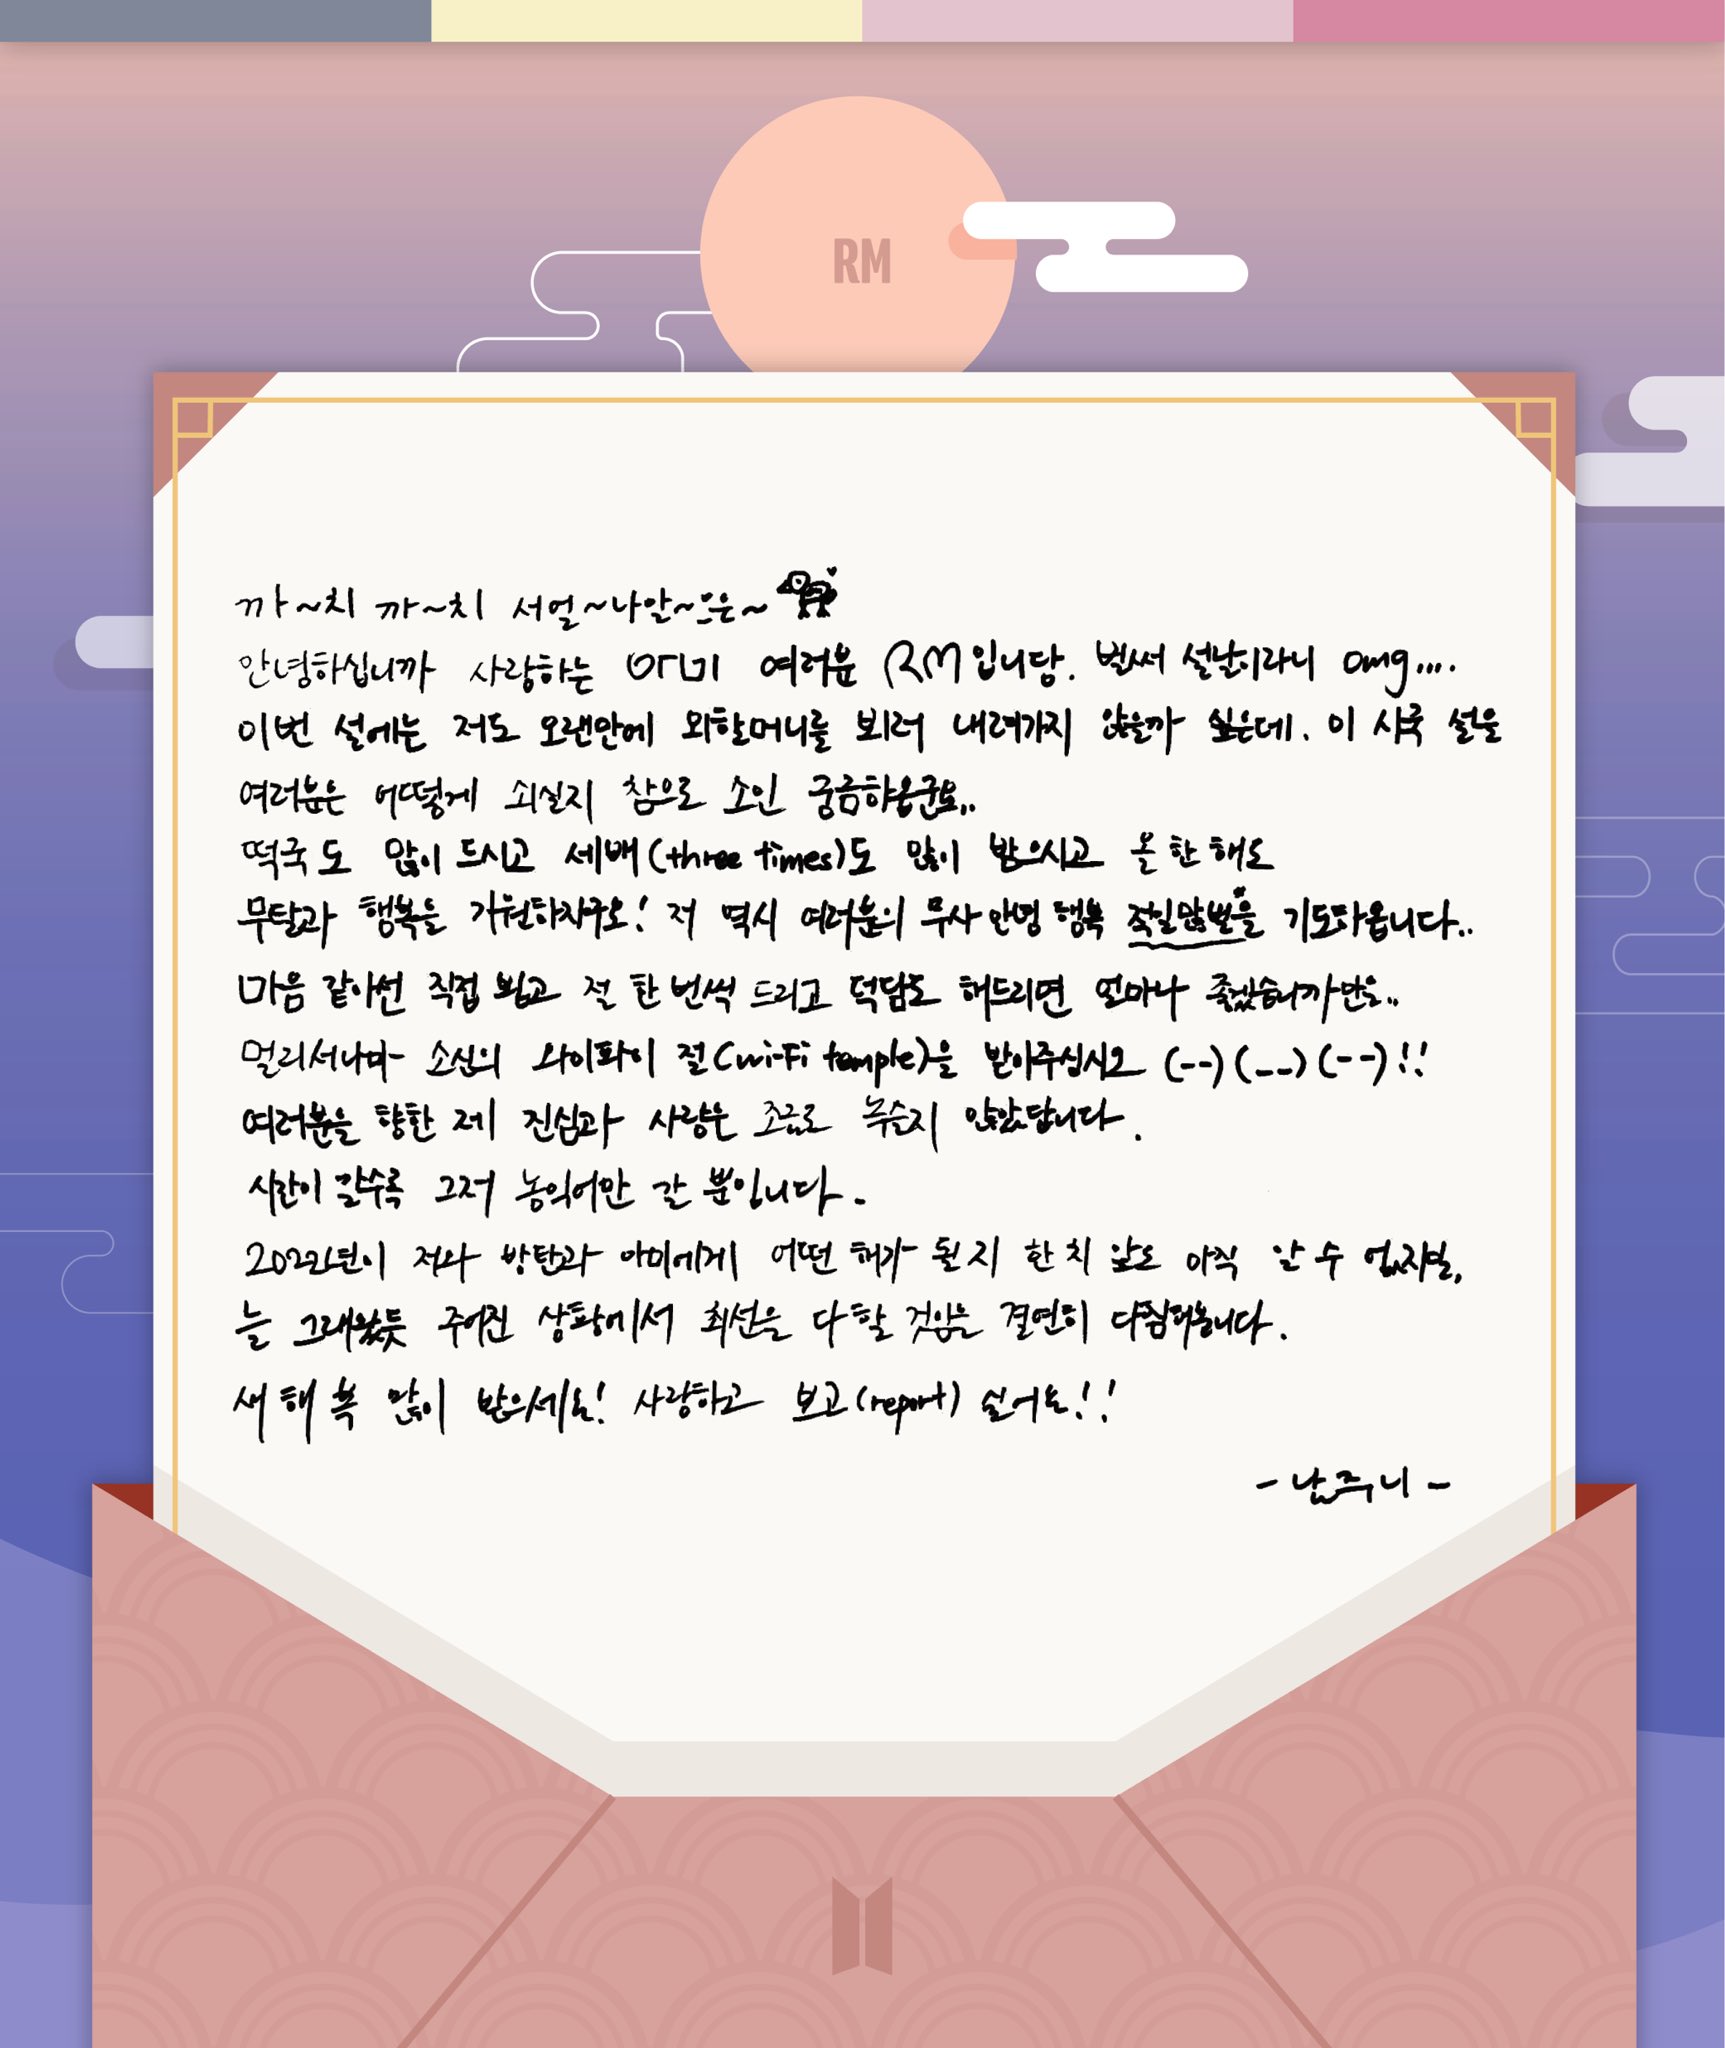 RM
까~치 까~치 서얼~나알~으은~
안녕하십니까 사랑하는 아미 여러분 RM입니당. 벌써 설날이라니 omg....
이번 설에는 저도 오랜만에 외할머니를 뵈러 내려가지 않을까 싶은데. 이 시국 설을
여러분은 어떻게 쇠실지 참으로 소인 궁금하옵군요..
떡국도 많이 드시고 세배(three times)도 많이 받으시고 올 한 해도
무탈과 행복을 기원하자구요! 저 역시 여러분의 무사 안녕 행복 죽일만벌을 기도하옵니다..
마음 같아선 직접 뵙고 절 한 번씩 드리고 덕담도 해드리면 얼마나 좋겠습니까만은..
멀리서나마 소신의 와이파이 절(wi-fi temple)을 받아주십시오 (--)(__)(--)!!
여러분을 향한 제 진심과 사랑은 조금도 녹슬지 않았답니다.
시간이 갈수록 그저 농익어만 갈 뿐입니다.
2022년이 저와 방탄과 아미에게 어떤 해가 될지 한 치 앞도 아직 알 수 없지만,
늘 그래왔듯 주어진 상황에서 최선을 다할 것임을 결연히 다짐해봅니다.
새해 복 많이 받으세요! 사랑하고 보고(report) 싶어요!!
- 남주니 -